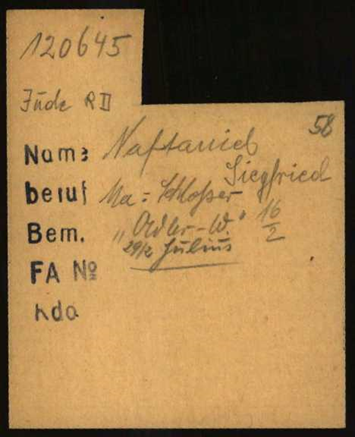 120645
Jude R II
58
Name Naftaniel
Siegfried
beruf Ma = Schlosser
Bem. "Adler-W." 16/2
29/2 Julius
FA №
Kdo